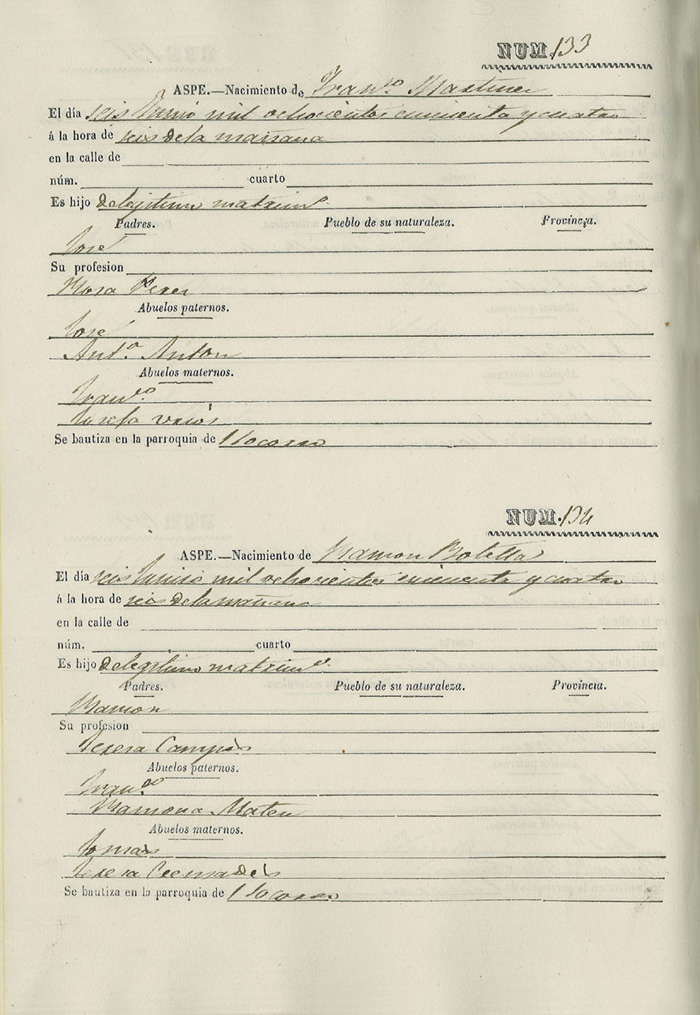 NUM. 133
ASPE.—Nacimiento de Fran.co Martinez
El día seis Junio mil ochocientos cincuenta y cuatro
á la hora de seis de la mañana
en la calle de
núm. cuarto
Es hijo de legitimo matrim.o
Padres. Pueblo de su naturaleza. Provincia.
José
Su profesion
Rosa Perez
Abuelos paternos.
José
Ant.a Anton
Abuelos maternos.
Fran.co
Josefa
Se bautiza en la parroquia de Socorro
NUM. 134
ASPE.—Nacimiento de Ramon Botella
El día seis Junio mil ochocientos cincuenta y cuatro
á la hora de seis de la mañana
en la calle de
núm. cuarto
Es hijo de legitimo matrim.o
Padres. Pueblo de su naturaleza. Provincia.
Ramon
Su profesion
Teresa
Abuelos paternos.
Fran.co
Ramona Mateu
Abuelos maternos.
Tomas
Teresa
Se bautiza en la parroquia de Socorro